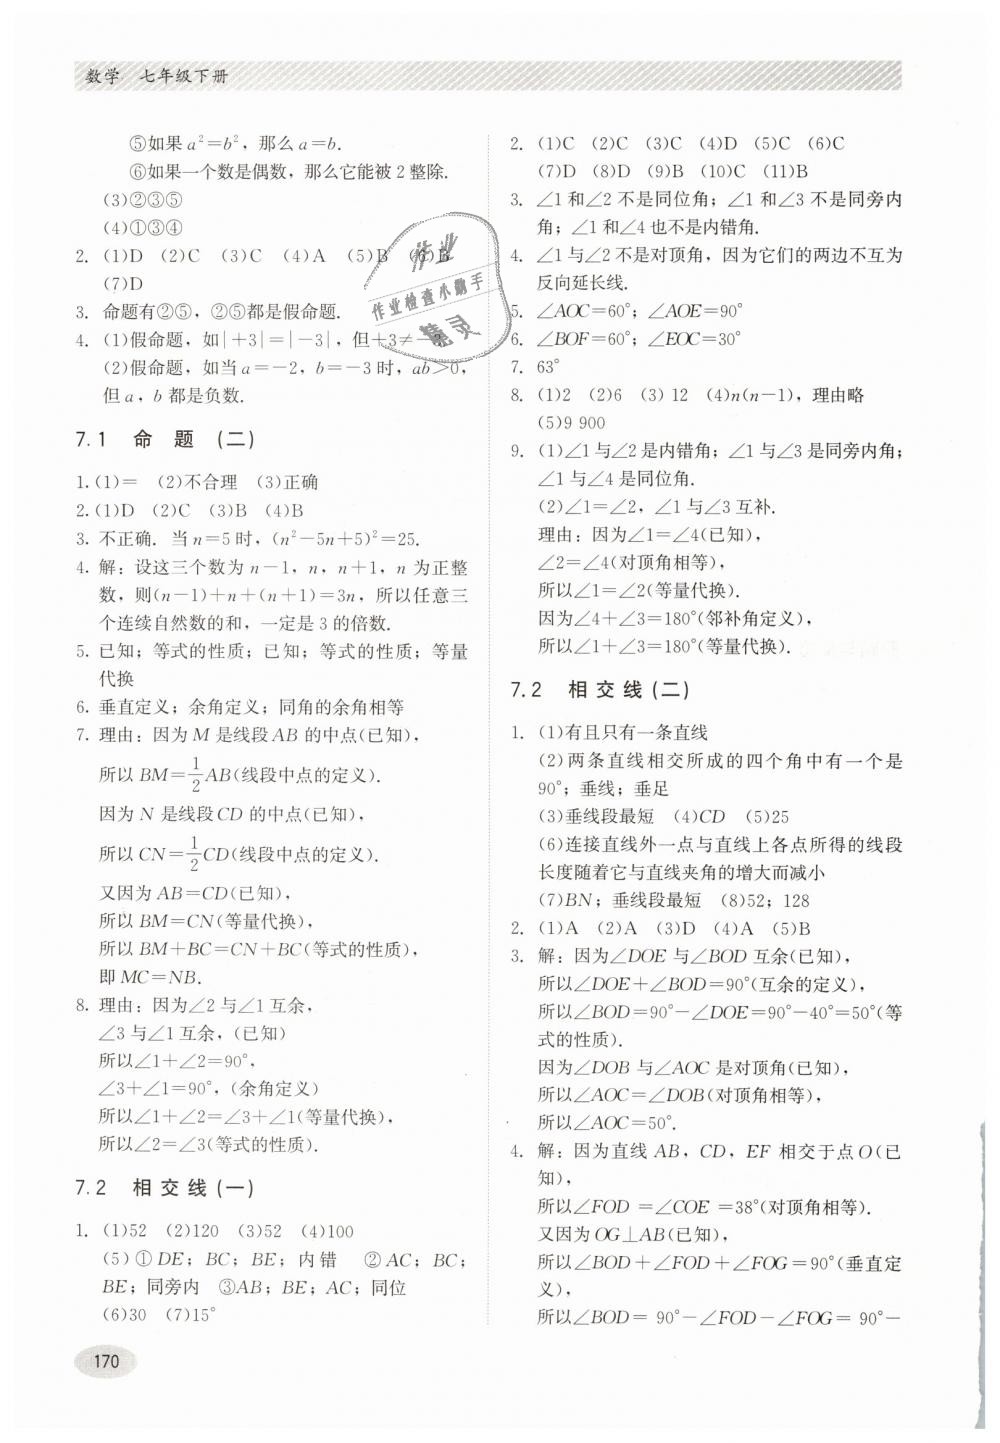 数学 七年级下册
⑤如果a²=b²，那么a=b.
⑥如果一个数是偶数，那么它能被2整除.
(3)②③⑤
(4)①③④
2. (1)D (2)C (3)C (4)A (5)B (6)B
(7)D
3. 命题有②⑤，②⑤都是假命题.
4. (1)假命题，如|+3|=|-3|，但+3≠-3.
(2)假命题，如当a=-2，b=-3时，ab>0，
但a，b都是负数.
7.1 命题(二)
1. (1)= (2)不合理 (3)正确
2. (1)D (2)C (3)B (4)B
3. 不正确. 当n=5时，(n²-5n+5)²=25.
4. 解：设这三个数为n-1，n，n+1，n为正整
数，则(n-1)+n+(n+1)=3n，所以任意三
个连续自然数的和，一定是3的倍数.
5. 已知；等式的性质；已知；等式的性质；等量
代换
6. 垂直定义；余角定义；同角的余角相等
7. 理由：因为M是线段AB的中点(已知)，
所以BM=1/2AB(线段中点的定义).
因为N是线段CD的中点(已知)，
所以CN=1/2CD(线段中点的定义).
又因为AB=CD(已知)，
所以BM=CN(等量代换)，
所以BM+BC=CN+BC(等式的性质)，
即MC=NB.
8. 理由：因为∠2与∠1互余，
∠3与∠1互余，(已知)
所以∠1+∠2=90°，
∠3+∠1=90°，(余角定义)
所以∠1+∠2=∠3+∠1(等量代换)，
所以∠2=∠3(等式的性质).
7.2 相交线(一)
1. (1)52 (2)120 (3)52 (4)100
(5)①DE；BC；BE；内错 ②AC；BC；
BE；同旁内 ③AB；BE；AC；同位
(6)30 (7)15°
170
2. (1)C (2)C (3)C (4)D (5)C (6)C
(7)D (8)D (9)B (10)C (11)B
3. ∠1和∠2不是同位角；∠1和∠3不是同旁内
角；∠1和∠4也不是内错角.
4. ∠1与∠2不是对顶角，因为它们的两边不互为
反向延长线.
5. ∠AOC=60°；∠AOE=90°
6. ∠BOF=60°；∠EOC=30°
7. 63°
8. (1)2 (2)6 (3)12 (4)n(n-1)，理由略
(5)9 900
9. (1)∠1与∠2是内错角；∠1与∠3是同旁内角；
∠1与∠4是同位角.
(2)∠1=∠2，∠1与∠3互补.
理由：因为∠1=∠4(已知)，
∠2=∠4(对顶角相等)，
所以∠1=∠2(等量代换).
因为∠4+∠3=180°(邻补角定义)，
所以∠1+∠3=180°(等量代换).
7.2 相交线(二)
1. (1)有且只有一条直线
(2)两条直线相交所成的四个角中有一个是
90°；垂线；垂足
(3)垂线段最短 (4)CD (5)25
(6)连接直线外一点与直线上各点所得的线段
长度随着它与直线夹角的增大而减小
(7)BN；垂线段最短 (8)52；128
2. (1)A (2)A (3)D (4)A (5)B
3. 解：因为∠DOE与∠BOD互余(已知)，
所以∠DOE+∠BOD=90°(互余的定义)，
所以∠BOD=90°-∠DOE=90°-40°=50°(等
式的性质).
因为∠DOB与∠AOC是对顶角(已知)，
所以∠AOC=∠DOB(对顶角相等)，
所以∠AOC=50°.
4. 解：因为直线AB，CD，EF相交于点O(已
知)，
所以∠FOD=∠COE=38°(对顶角相等).
又因为OG⊥AB(已知)，
所以∠BOD+∠FOD+∠FOG=90°(垂直定
义)，
所以∠BOD=90°-∠FOD-∠FOG=90°-
作业
作业检查小助手
精灵